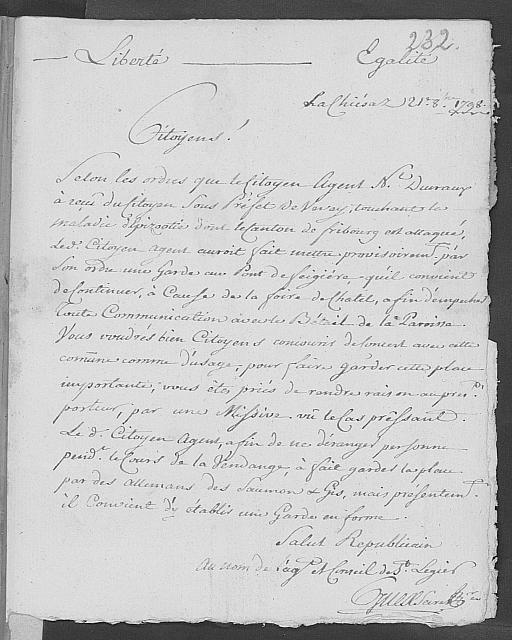 232.
Liberté Egalité
La Chiésaz 21e 8bre 1798.
Citoyens!
Selon les ordres que le Citoyen Agent Nl
à reçu du Citoyen Sous Préfet de Vevay, touchant la
maladie d'épizootie dont le Canton de fribourg est attaqué,
le dt. Citoyen Agent auroit fait mettre provisoiremt. par
Son ordre une Garde au Pont de feigiére qu'il convient
de Continuer, à Cause de la foire de Chatel, afin d'empecher
toute Communication avec le Bétail de la Paroisse.
Vous voudrés bien Citoyens concourir de Concert avec cette
comune comme d'usage, pour faire garder cette place
importante; vous êtes priés de rendre raison au pres.
porteur, par une Missive vû le Cas prêssant.
Le dt. Citoyen Agent, afin de ne déranger personne
pendt. le Cours de la Vendange, à fait gardes la place
par des allemans des Saumont & Gis, mais présentemt.
il Convient d'y établis une Garde en forme.
Salut Républicain
Au nom de l'agt. et Conseil de St. Légier